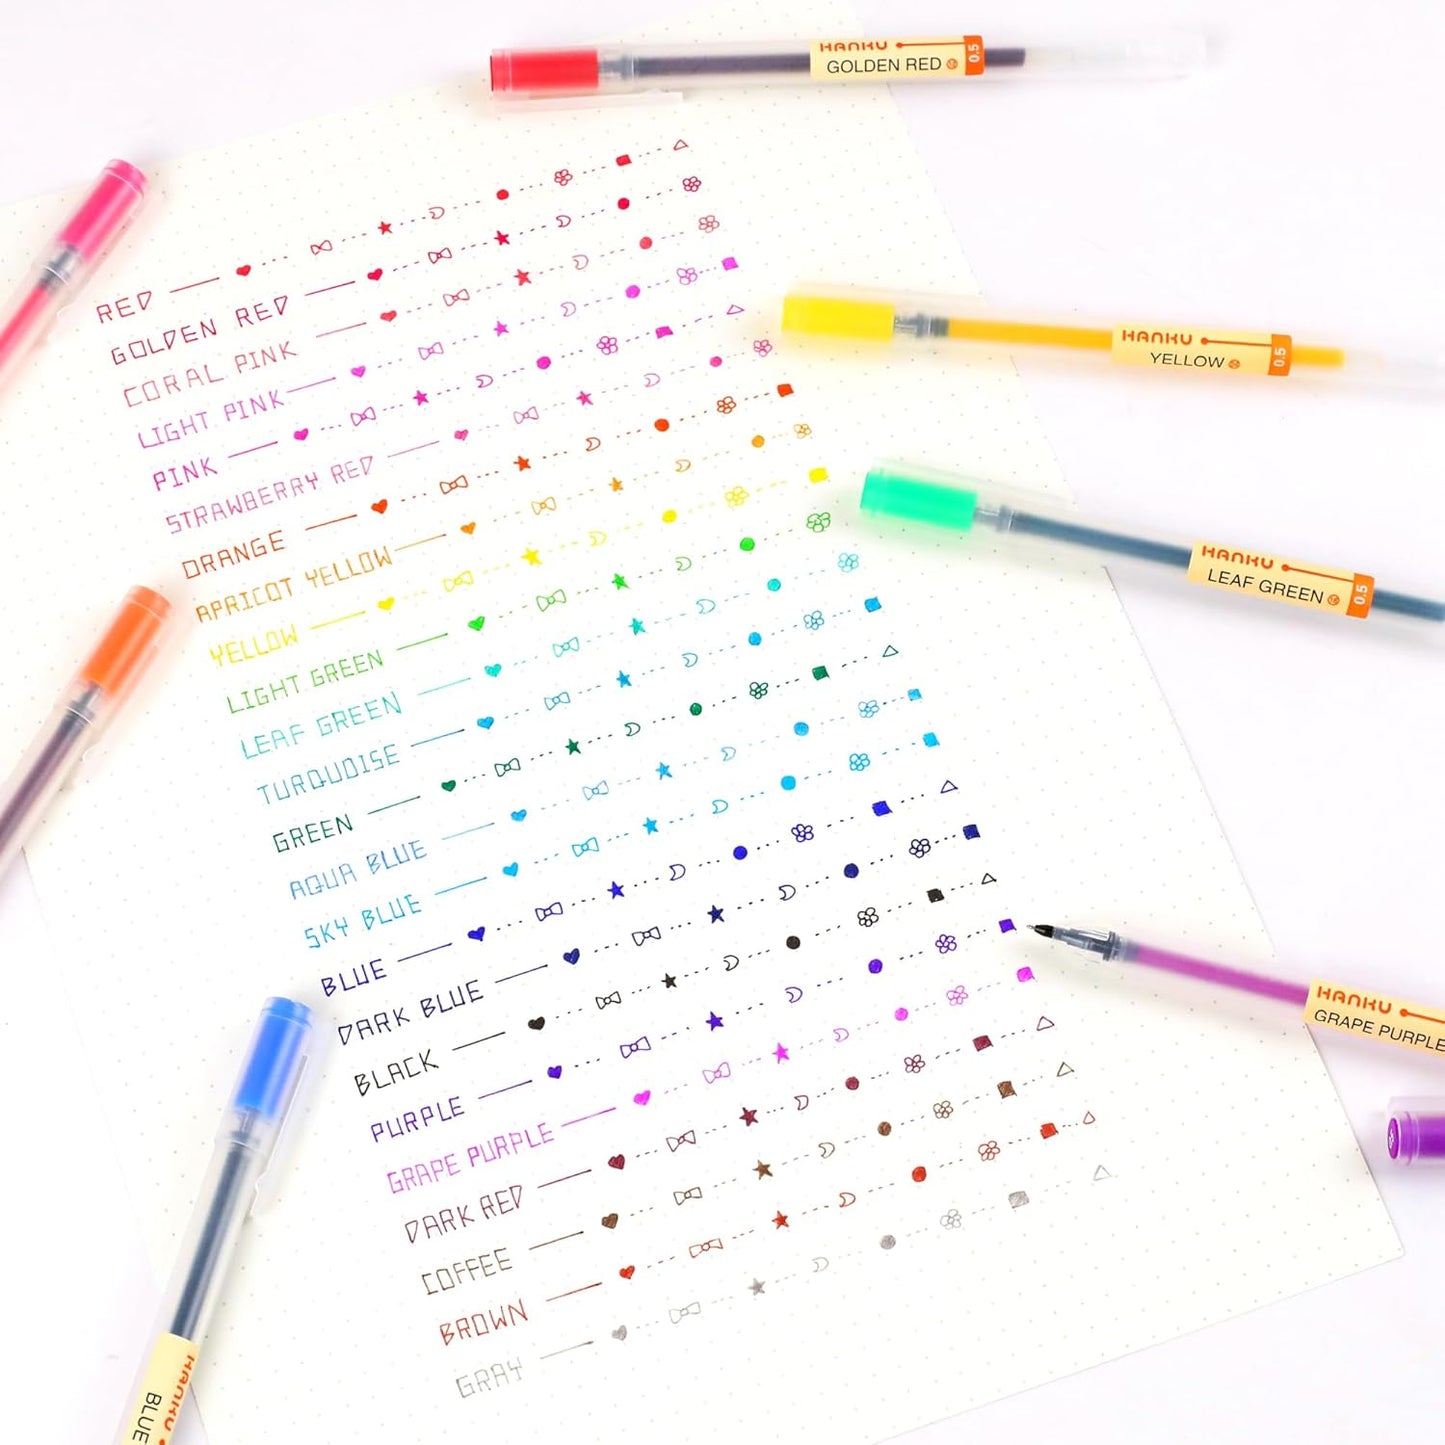 HANKU
GOLDEN RED
0.5
RED
GOLDEN RED
CORAL PINK
LIGHT PINK
PINK
STRAWBERRY RED
ORANGE
APRICOT YELLOW
YELLOW
LIGHT GREEN
LEAF GREEN
TURQUOISE
GREEN
AQUA BLUE
SKY BLUE
BLUE
DARK BLUE
BLACK
PURPLE
GRAPE PURPLE
DARK RED
COFFEE
BROWN
GRAY
HANKU
YELLOW
0.5
HANKU
LEAF GREEN
0.5
HANKU
GRAPE PURPLE
HANKU
BLUE